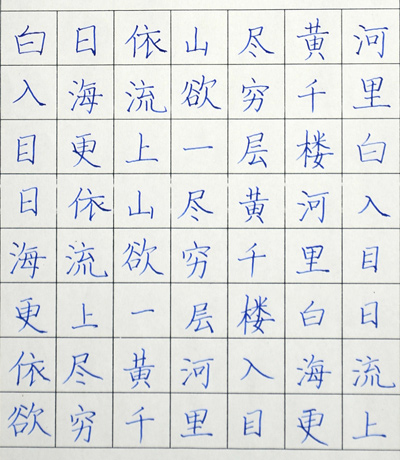 白日依山尽黄河
入海流欲穷千里
目更上一层楼白
日依山尽黄河入
海流欲穷千里目
更上一层楼白日
依尽黄河入海流
欲穷千里目更上